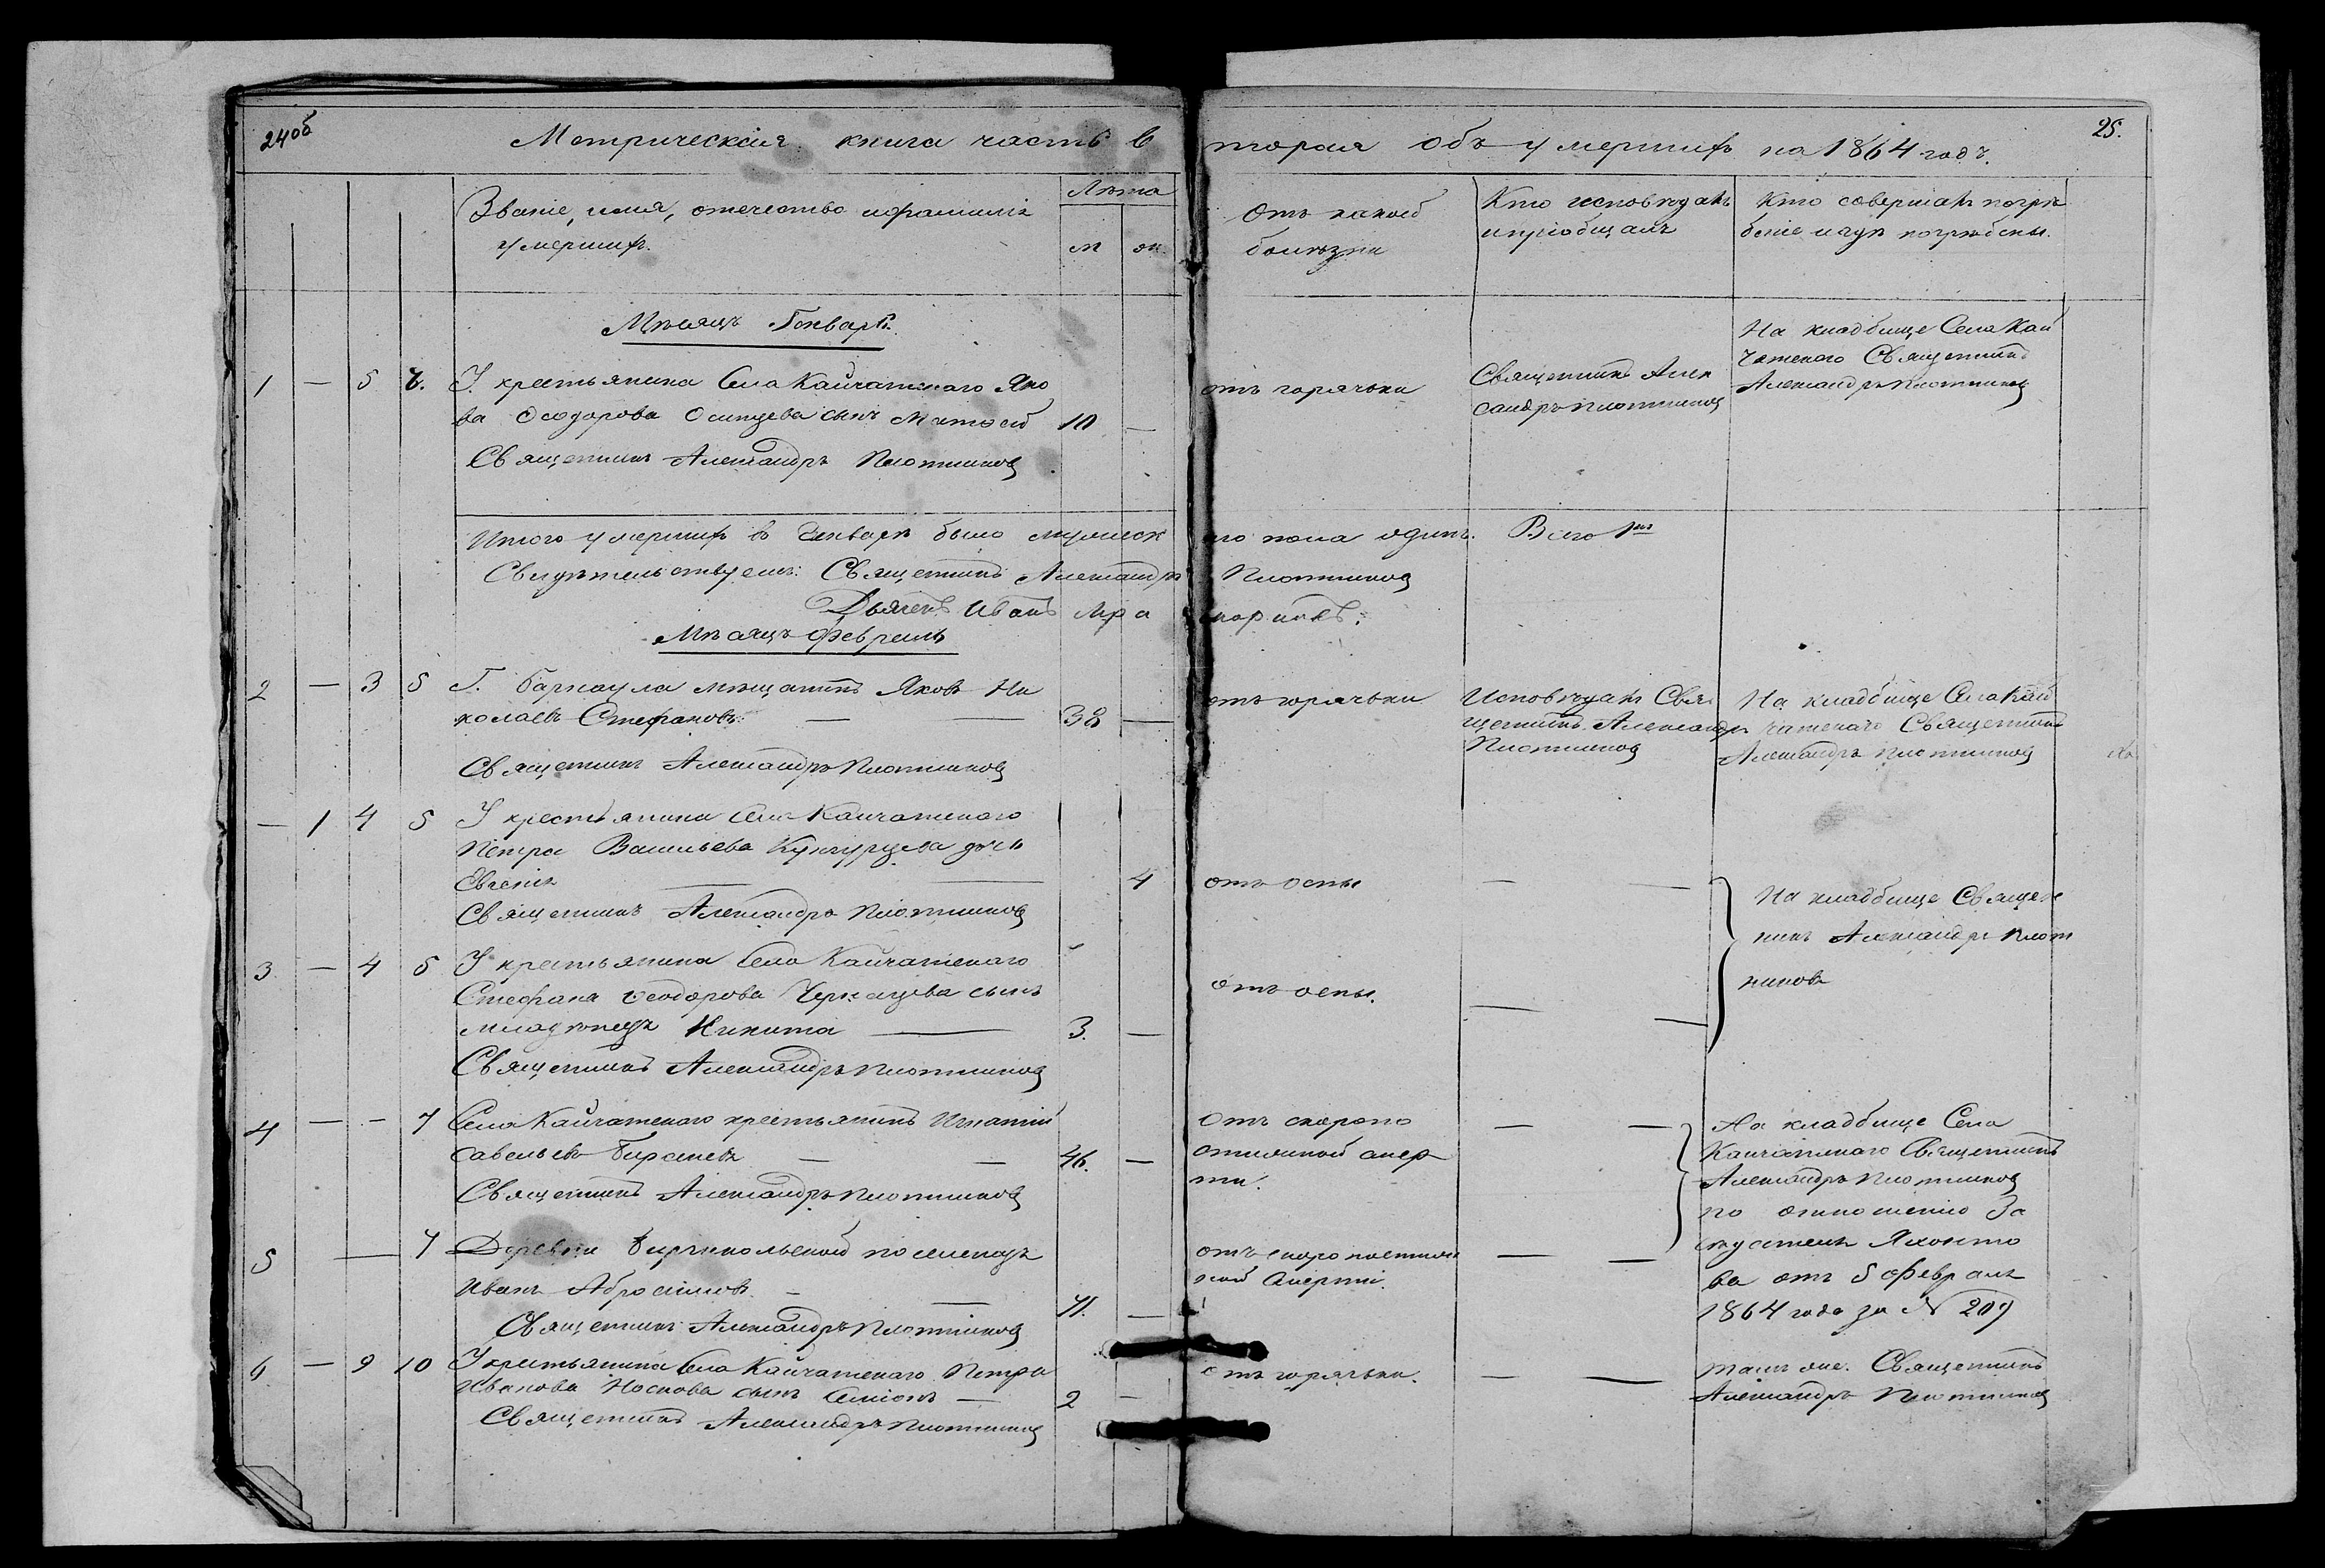 24об
Метрическая книга часть в
торая объ умершихъ на 1864 годъ.
25.
Званіе, имя, отечество и фамилія
умершихъ.
Лѣта
м
ж.
Отъ какой
болѣзни
Кто исповѣдалъ
и пріобщалъ
Кто совершалъ погре
беніе и гдѣ погребены.
Мѣсяцъ Генварь.
1 — 5 7. У крестьянина Села Кайчатскаго Яко
ва Ѳеодорова Осипцева сынъ Матѳей 10 —
Священникъ Александръ Плотниковъ
отъ горячьки
Священникъ Алек
сандръ Плотниковъ
На кладбище Села Кай
чатскаго Священникъ
Александръ Плотниковъ
Итого умершихъ в Генварѣ было мужеск
аго пола одинъ. Всего 1нъ
Свидѣтельствуемъ: Священникъ Александръ
Плотниковъ
Дьячекъ Иванъ
Мѣсяцъ Февраль
2 — 3 5 Г. Барнаула мещанинъ Яковъ Ни
колаевъ Стефановъ. — — 38 —
Священникъ Александръ Плотниковъ
отъ горячьки
Исповѣдалъ Свя
щенникъ Александръ
Плотниковъ
На кладбище Села Кай
чатскаго Священникъ
Александръ Плотниковъ
— 1 4 5 У крестьянина Села Кайчатскаго
Петра Васильева Кунгурцева дочь
Евгенія — — 4
Священникъ Александръ Плотниковъ
отъ оспы — —
На кладбище Священ
никъ Александръ Плот
никовъ
3 — 4 5 У крестьянина Села Кайчатскаго
Стефана Ѳеодорова Черкащева сынъ
младенецъ Никита — 3. —
Священникъ Александръ Плотниковъ
отъ оспы. — —
4 — - 7 Села Кайчатскаго крестьянинъ Игнатій
Савельевъ — — 46. —
Священникъ Александръ Плотниковъ
Отъ скоропо
стижной смер
ти. — —
На кладбище Села
Кайчатскаго Священникъ
Александръ Плотниковъ
по отношенію За
сѣдателя Яхонто
ва отъ 5 Февраля
1864 года за № 209
5 — 7 Деревни поселенецъ
Иванъ Абросимовъ. - — 71. —
Священникъ Александръ Плотниковъ
отъ скоропостиж
ной смерти. — —
6 — 9 10 У крестьянина Села Кайчатскаго Петра
Иванова Носкова сынъ Симіонъ — 2 —
Священникъ Александръ Плотниковъ
отъ горячьки. — —
тамъ же. Священникъ
Александръ Плотниковъ